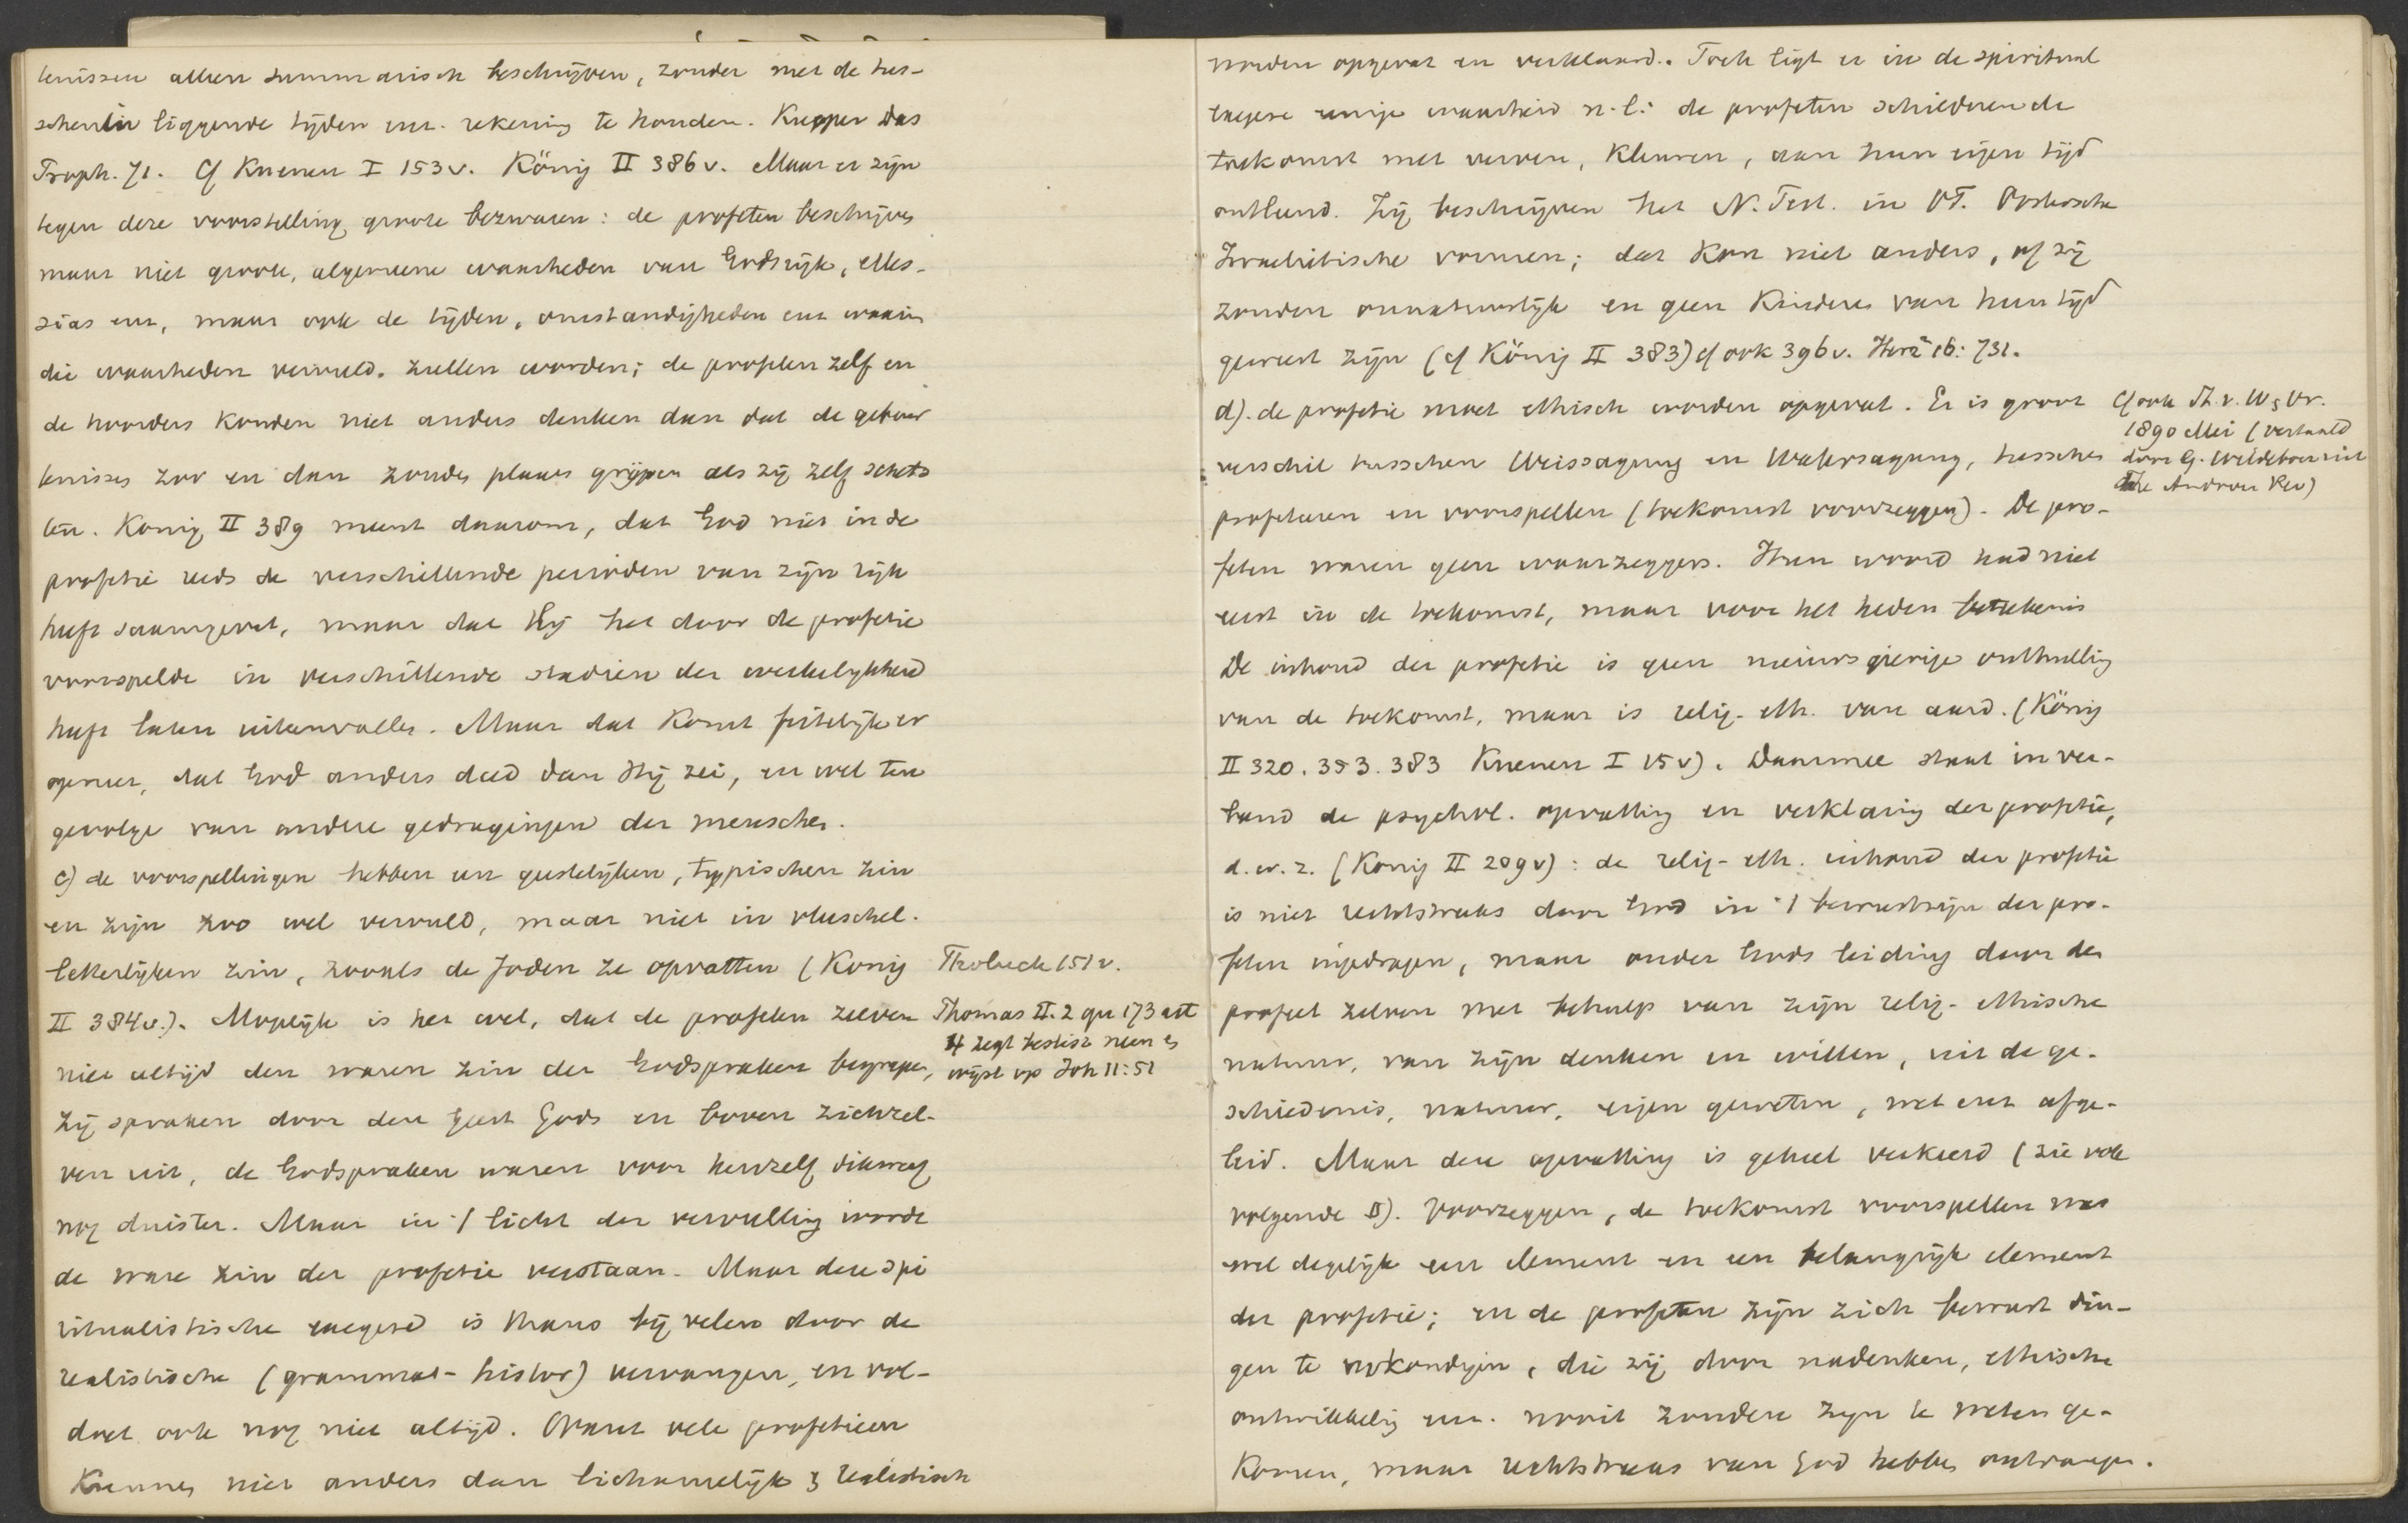 tenissen alleen summarisch beschrijven, zonder met de tus-
schenin liggende tijden enz. rekening te houden. Kueper Das
Proph. 71. Cf Kuenen I 153v. König II 386v. Maar er zijn
tegen deze voorstelling groote bezwaren: de profeten beschrijven
maar niet groote, algemeene waarheden van Godsrijk, Mes-
sias enz, maar ook de tijden, omstandigheden enz waarin
die waarheden vervuld zullen worden; de profeten zelf en
de hoorders konden niet anders denken dan dat de gebeur
tenissen zoo en dan zouden plaats grijpen als zij zelf schets
ten. König II 389 meent daarom, dat God niet in de
profetie reeds de verschillende perioden van zijn rijk
heeft saamgevat, maar dat Hij het door de profetie
voorspelde in verschillende stadien der werkelijkheid
heeft laten uiteenvallen. Maar dat komt feitelijk er
op neer, dat God anders deed dan Hij zei, en wel ten
gevolge van andere gedragingen der menschen.
c) de voorspellingen hebben een geestelijken, typischen zin
en zijn zoo wel vervuld, maar niet in vleeschel.
letterlijken zin, zooals de Joden ze opvatten (König
II 384v.). Mogelijk is het wel, dat de profeten zelven
niet altijd den waren zin der Godspraken begrepen,
zij spraken door den Geest Gods en boven zichzel-
ven uit, de Godspraken waren voor henzelf dikwerf
nog duister. Maar in 't licht der vervulling worde
de ware zin der profetie verstaan. Maar deze spi
ritualistische exegese is thans bij velen door de
realistische (grammat-histor) vervangen, en vol-
doet ook nog niet altijd. Want vele profetieen
kunnen niet anders dan lichamelijk & realistisch
Tholuck 151v.
Thomas II.2 qu 173 art
4 zegt beslist neen &
wijst op Joh 11:51
worden opgevat en verklaard. Toch ligt er in de spiritual
exegese eenige waarheid n.l: de profeten schilderen de
toekomst met verven, kleuren, aan hun eigen tijd
ontleend. Zij beschrijven het N. Test. in OT.
Israelietische vormen; dat kon niet anders, of zij
zouden onnatuurlijk en geen kinderen van hun tijd
geweest zijn (cf König II 383) cf ook 396v. Herz 16: 731.
d). de profetie moet ethisch worden opgevat. Er is groot
verschil tusschen Weissagung en Wahrsagung, tusschen
profeteeren en voorspellen (toekomst voorzeggen). De pro-
feten waren geen waarzeggers. Hun woord had niet
eerst in de toekomst, maar voor het heden beteekenis
De inhoud der profetie is geen nieuwsgierige onthulling
van de toekomst, maar is relig-eth. van aard. (König
II 320. 353. 383 Kuenen I 15v). Daarmee staat in ver-
band de psychol. opvatting en verklaring der profetie,
d.w.z. (König II 209v): de relig-eth. inhoud der profetie
is niet rechtstreeks door God in 't bewustzijn der pro-
feten ingedragen, maar onder Gods leiding door den
profeet zelven met behulp van zijn relig-ethische
natuur, van zijn denken en willen, uit de ge-
schiedenis, natuur, eigen geweten, wet enz afge-
leid. Maar deze opvatting is geheel verkeerd (zie ook
volgende §). Voorzeggen, de toekomst voorspellen was
wel degelijk een element en een belangrijk element
der profetie; en de profeten zijn zich bewust din-
gen te verkondigen, die zij door nadenken, ethische
ontwikkeling enz. nooit zouden zijn te weten ge-
komen, maar rechtstreeks van God hebben ontvangen.
Cf ook Th. v. W & Vr.
1890 Mei (vertaald
door G. Wildeboer uit
The Andover Rev)